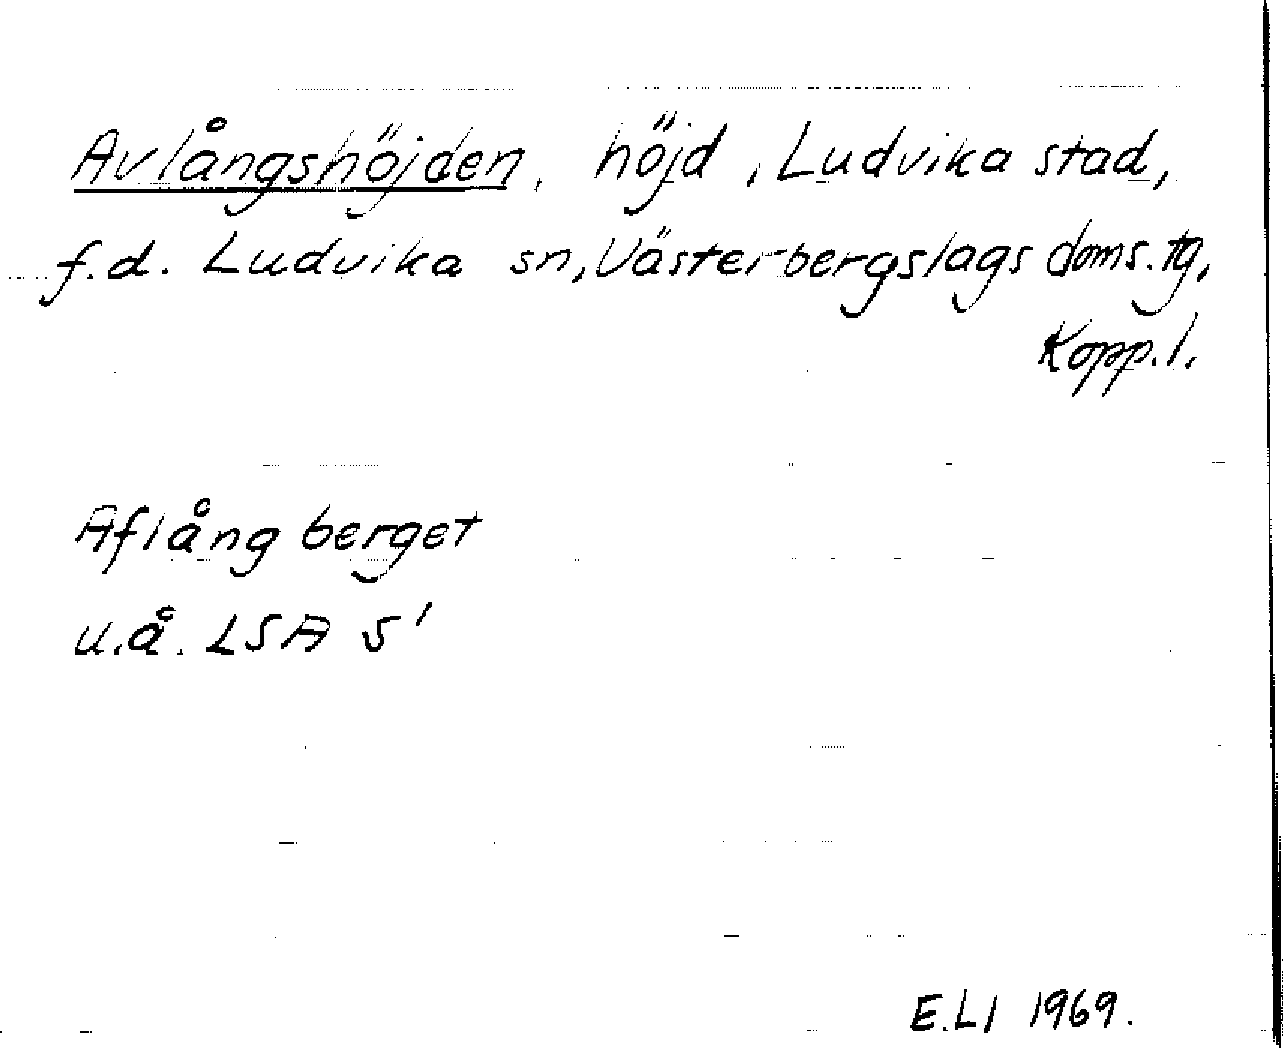 Avlångshöjden, höjd, Ludvika stad,
f.d. Ludvika sn, Västerbergslags doms.tg,
Kopp.l.
Aflång berget
u.å. LSA S'
E.LI 1969.